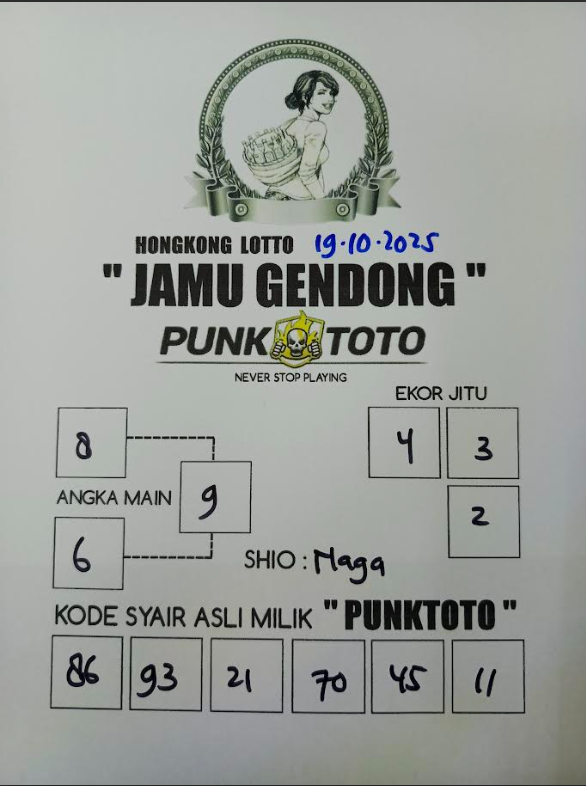 HONGKONG LOTTO 19.10.2025
" JAMU GENDONG "
PUNK TOTO
NEVER STOP PLAYING
EKOR JITU
8
4 3
ANGKA MAIN 9
2
6
SHIO : Naga
KODE SYAIR ASLI MILIK " PUNKTOTO "
86 93 21 70 45 11